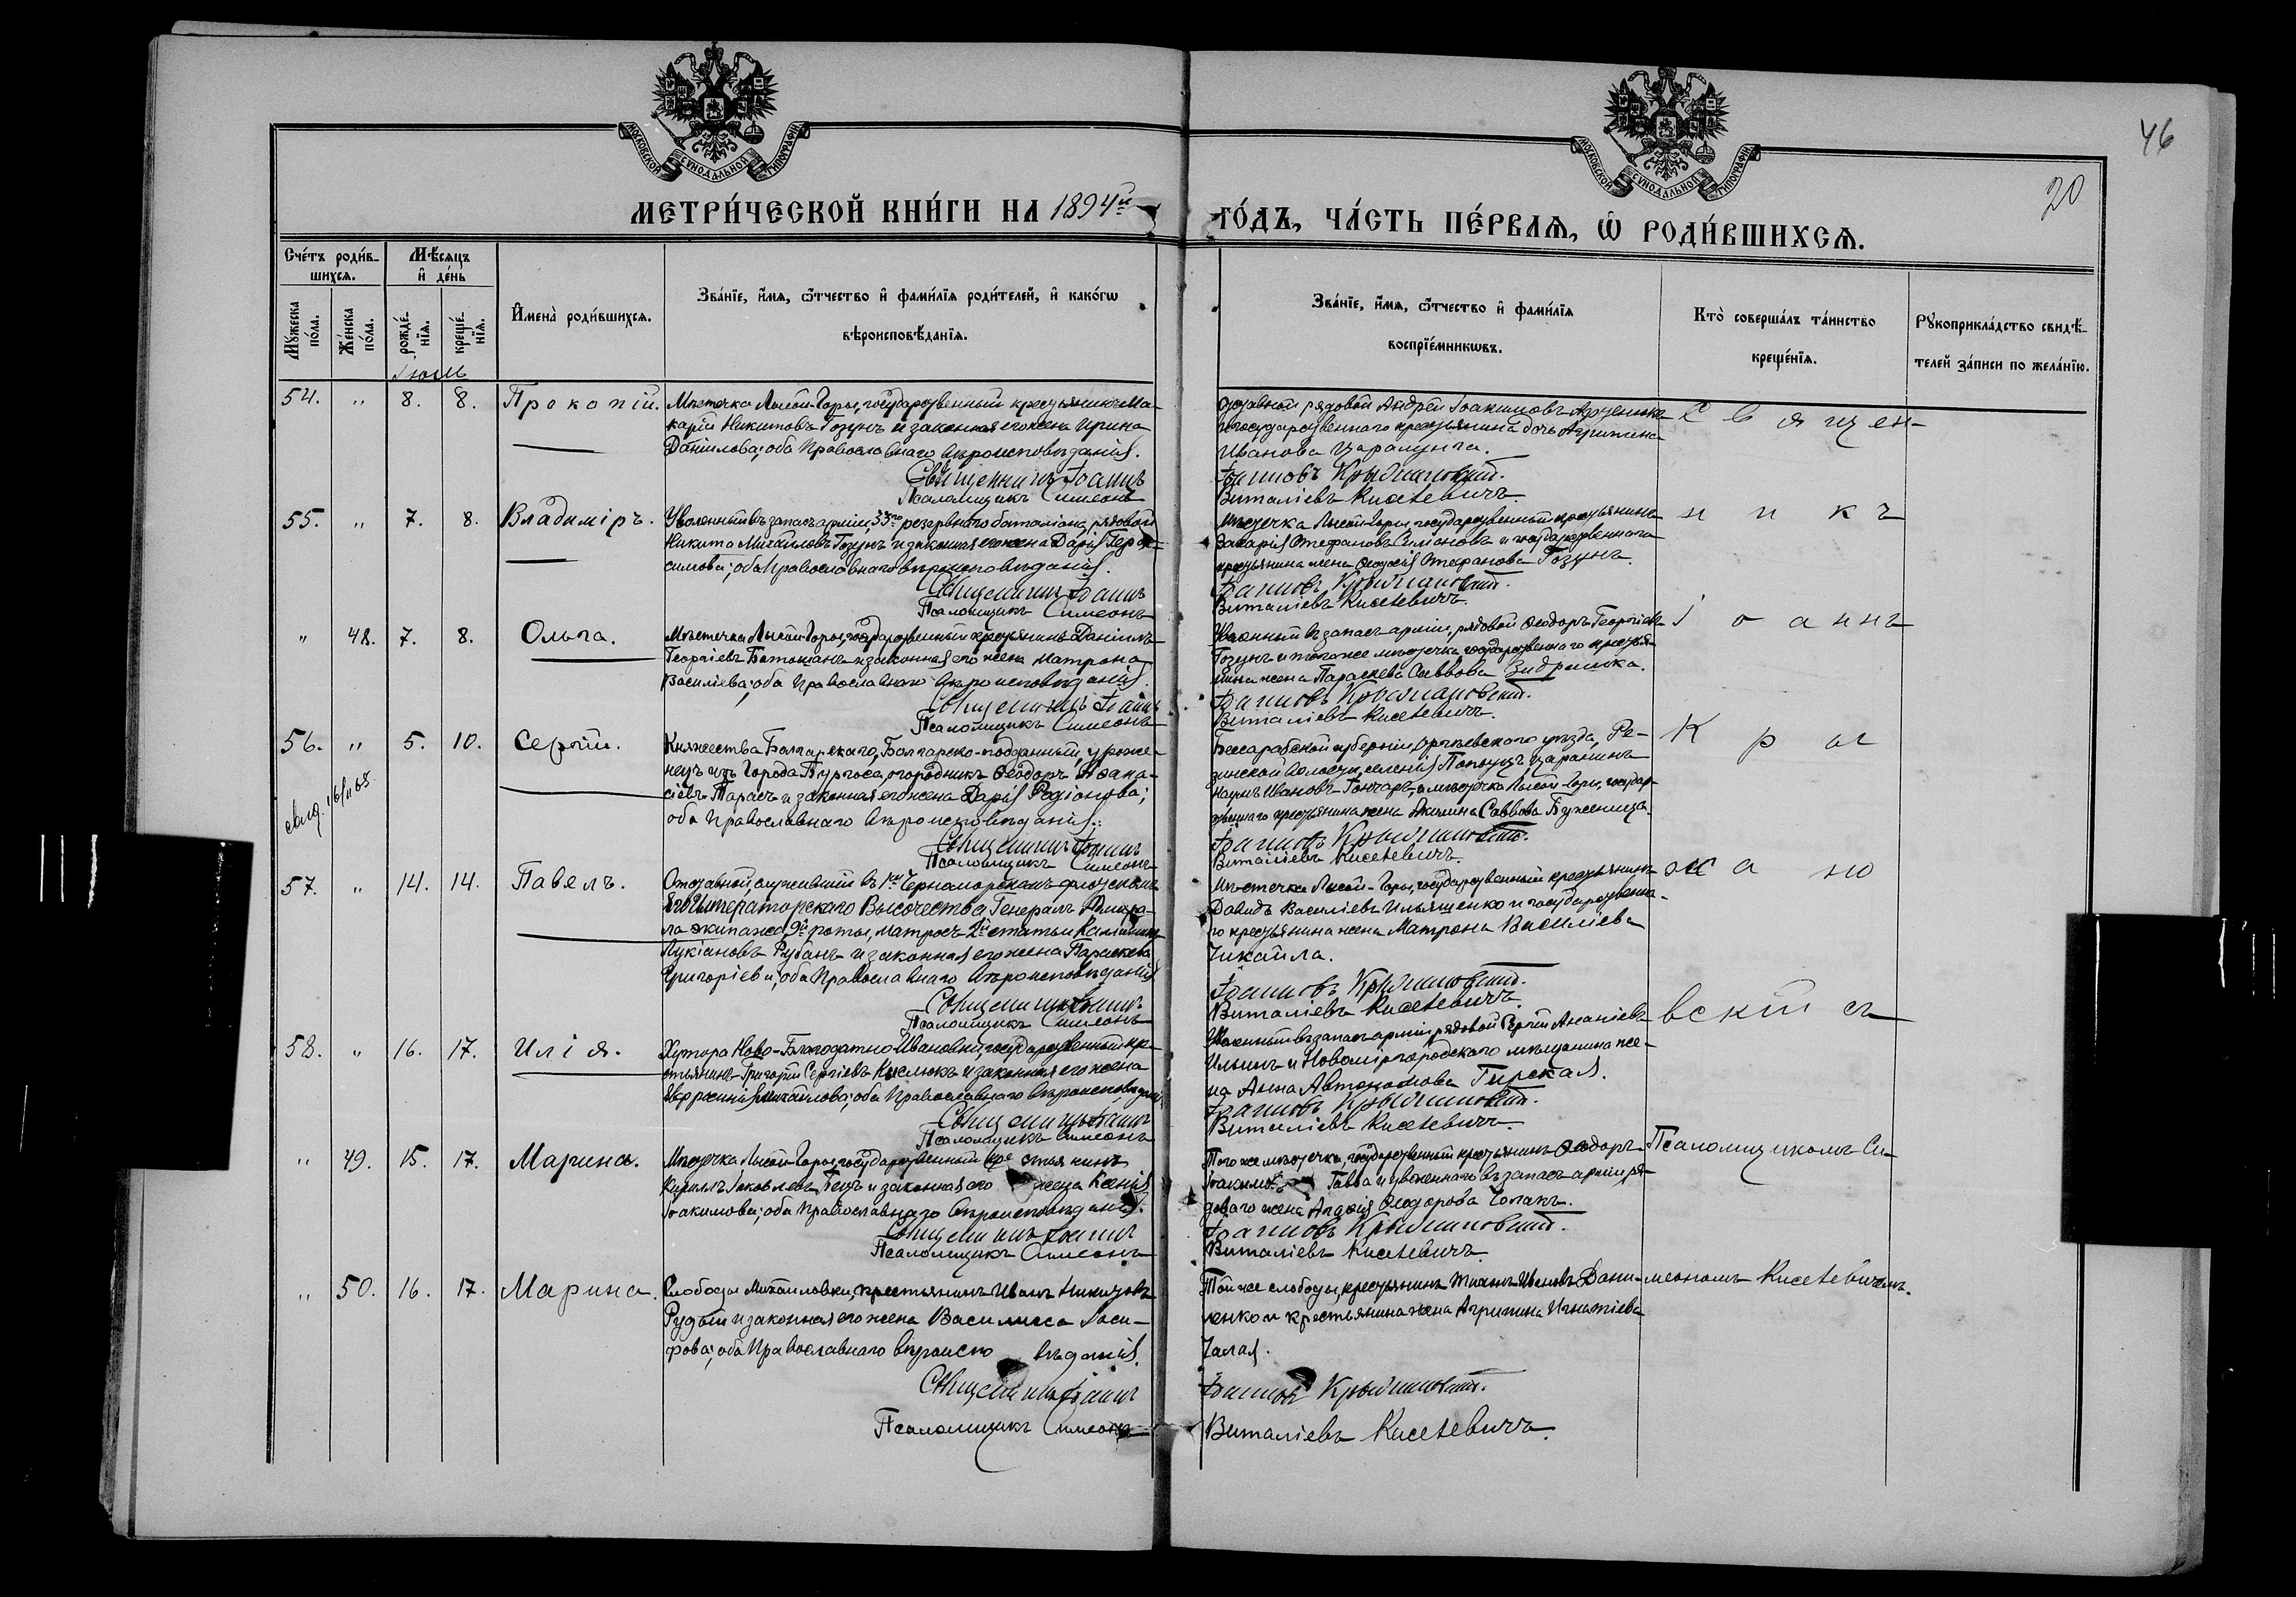 МОСКОВСКОЙ СѴНОДАЛЬНОЙ ТИПОГРАФІИ
МОСКОВСКОЙ СѴНОДАЛЬНОЙ ТИПОГРАФІИ
46
20
МЕТРИ́ЧЕСКОЙ КНИ́ГИ НА 1894й
ГО́ДЪ, ЧА́СТЬ ПЕ́РВАѦ, Ѡ҆ РОДИ́ВШИХСѦ.
Сче́тъ роди́в-
шихсѧ.
Мѣ́сѧцъ
и҆ де́нь
Мꙋ́жеска по́ла.
Же́нска по́ла.
рожде́-
нїѧ.
креще́-
нїѧ.
И҆мена̀ роди́вшихсѧ.
Зва́нїе, и҆́мѧ, ѻ҆́тчество и҆ фами́лїѧ роди́телей, и҆ како́гѡ
вѣроисповѣ́данїѧ.
Зва́нїе, и҆́мѧ, ѻ҆́тчество и҆ фами́лїѧ
воспрїе́мникѡвъ.
Кто̀ соверша́лъ та́инство
креще́нїѧ.
Рꙋкоприкла́дство свидѣ́-
телей за́писи по жела́нїю.
Іюль
54. " 8. 8. Прокопій.
Мѣстечка Лысой-Горы, государственный крестьянинъ Ма-
карій Никитовъ Гозунъ и законная его жена Ирина
Даніилова; оба Православнаго вѣроисповѣданія.
Священникъ Іоаннъ
Псаломщикъ Симеонъ
Отставной рядовой Андрей Іоакимовъ
государственнаго крестьянина дочь Агрипина
Иванова
Іоанновъ Крыжановскій.
Виталіевъ Кисѣлевичъ.
55. " 7. 8. Владиміръ.
Уволенный въ запасъ арміи, 33го резервнаго баталіона, рядовой
Никита Михайловъ Гозунъ и законная его жена Дарія Гера-
симова; оба Православнаго вѣроисповѣданія.
Священникъ Іоаннъ
Псаломщикъ Симеонъ
Мѣстечка Лысой-Горы, государственный крестьянинъ
Захарія Стефановъ Симоновъ и государственнаго
крестьянина жена Ѳеодосія Стефанова Гозунъ.
Іоанновъ Крыжановскій.
Виталіевъ Кисѣлевичъ.
" 48. 7. 8. Ольга.
Мѣстечка Лысой-Горы, государственный крестьянинъ Даніилъ
Георгіевъ Ботошанъ и законная его жена Матрона
Василіева; оба Православнаго вѣроисповѣданія.
Священникъ Іоаннъ
Псаломщикъ Симеонъ
Уволенный въ запасъ арміи, рядовой Ѳеодоръ Георгіевъ
Гозунъ и того же мѣстечка, государственнаго крестья-
нина жена Параскева Саввова
Іоанновъ Крыжановскій.
Виталіевъ Кисѣлевичъ.
56. " 5. 10. Сергій.
Княжества Болгарскаго, Болгарско-подданный, уроже-
нецъ изъ Города Бургоса, огородникъ Ѳеодоръ Аѳана-
сіевъ Тарасъ и законная его жена Дарія Родіонова;
оба Православнаго вѣроисповѣданія.
Священникъ Іоаннъ
Псаломщикъ Симеонъ
Бессарабской губерніи, Оргѣевскаго уѣзда, Ре-
зинской волости, селенія Попоуцъ царанинъ
Наумъ Ивановъ Гончаръ, и мѣстечка Лысой-Горы, государ-
ственнаго крестьянина жена Акилина Саввова Буженица.
Іоанновъ Крыжановскій.
Виталіевъ Кисѣлевичъ.
57. " 14. 14. Павелъ.
Отставной, служившій въ 1мъ Черноморскомъ флотскомъ
Его Императорскаго Высочества, Генералъ Адмира-
ла экипажа, 9й роты, матросъ 2й статьи
Лукіановъ Рубанъ и законная его жена Параскева
Григоріева; оба Православнаго вѣроисповѣданія
Священникъ Іоаннъ
Псаломщикъ Симеонъ
Мѣстечка Лысой-Горы, государственный крестьянинъ
Давидъ Василіевъ Ильященко и государственна-
го крестьянина жена Матрона Василіева
Чикайла.
Іоанновъ Крыжановскій.
Виталіевъ Кисѣлевичъ.
58. " 16. 17. Илія.
Хутора Ново-Благодатно-Ивановки, государственный кре-
стьянинъ Григорій Сергіевъ Кислюкъ и законная его жена
Евфросинія Михайлова; оба Православнаго вѣроисповѣданія
Священникъ Іоаннъ
Псаломщикъ Симеонъ
Уволенный въ запасъ арміи, рядовой Сергій Ананіевъ
Ильинъ и Новомиргородскаго мѣщанина же-
на Анна Автономова Гирская.
Іоанновъ Крыжановскій.
Виталіевъ Кисѣлевичъ.
" 49. 15. 17. Марина.
Мѣстечка Лысой-Горы, государственный крестьянинъ
Кириллъ Іаковлевъ Бецъ и законная его жена Ксенія
Іоакимова; оба Православнаго вѣроисповѣданія.
Священникъ Іоаннъ
Псаломщикъ Симеонъ
Того же мѣстечка, государственный крестьянинъ Ѳеодоръ
Іоакимовъ Гавва и уволеннаго въ запасъ арміи ря-
доваго жена Ѳеодорова
Іоанновъ Крыжановскій.
Виталіевъ Кисѣлевичъ
" 50. 16. 17. Марина.
Слободы Михайловки, крестьянинъ Иванъ Никитовъ
Рудый и законная его жена Василисса Іоси-
фова; оба Православнаго вѣроисповѣданія.
Священникъ Іоаннъ
Псаломщикъ Симеонъ
Той же слободы, крестьянинъ Ивановъ Дани-
ленко и крестьянина жена Агрипина Игнатіева
Чалая.
Іоанновъ Крыжановскій.
Виталіевъ Кисѣлевичъ.
Священ-
никъ
Іоаннъ
Кры
жано
вскій съ
Псаломщикомъ Си-
меономъ Кисѣлевичемъ.